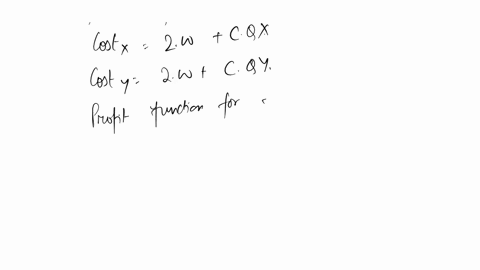 Cost x = 2.w + C.QX
Cost y = 2.w + C.QY.
Profit function for